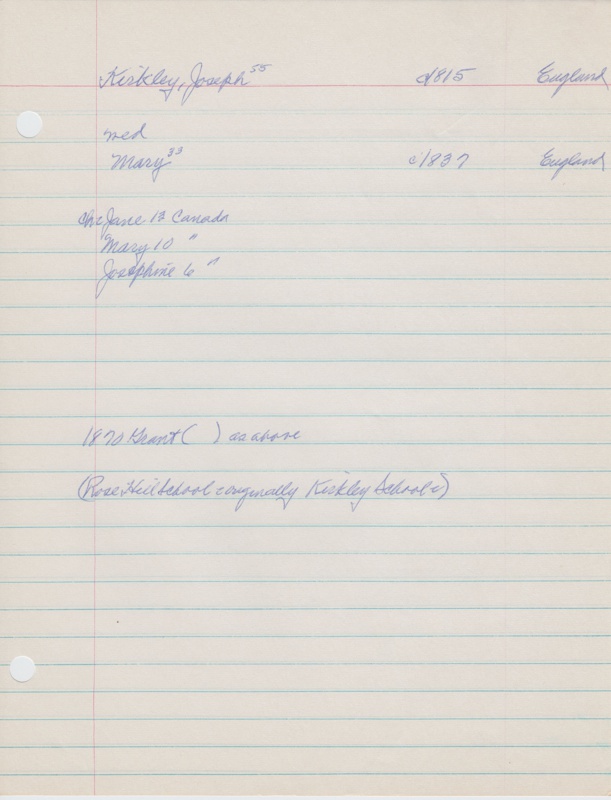 Kirkley, Joseph 55 c/1815 England
med
Mary 33 c/1837 England
ch: Jane 12 Canada
Mary 10 "
Josephine 6 "
1870 Grant ( ) as above
(Rose Hill School = originally Kirkley School =)